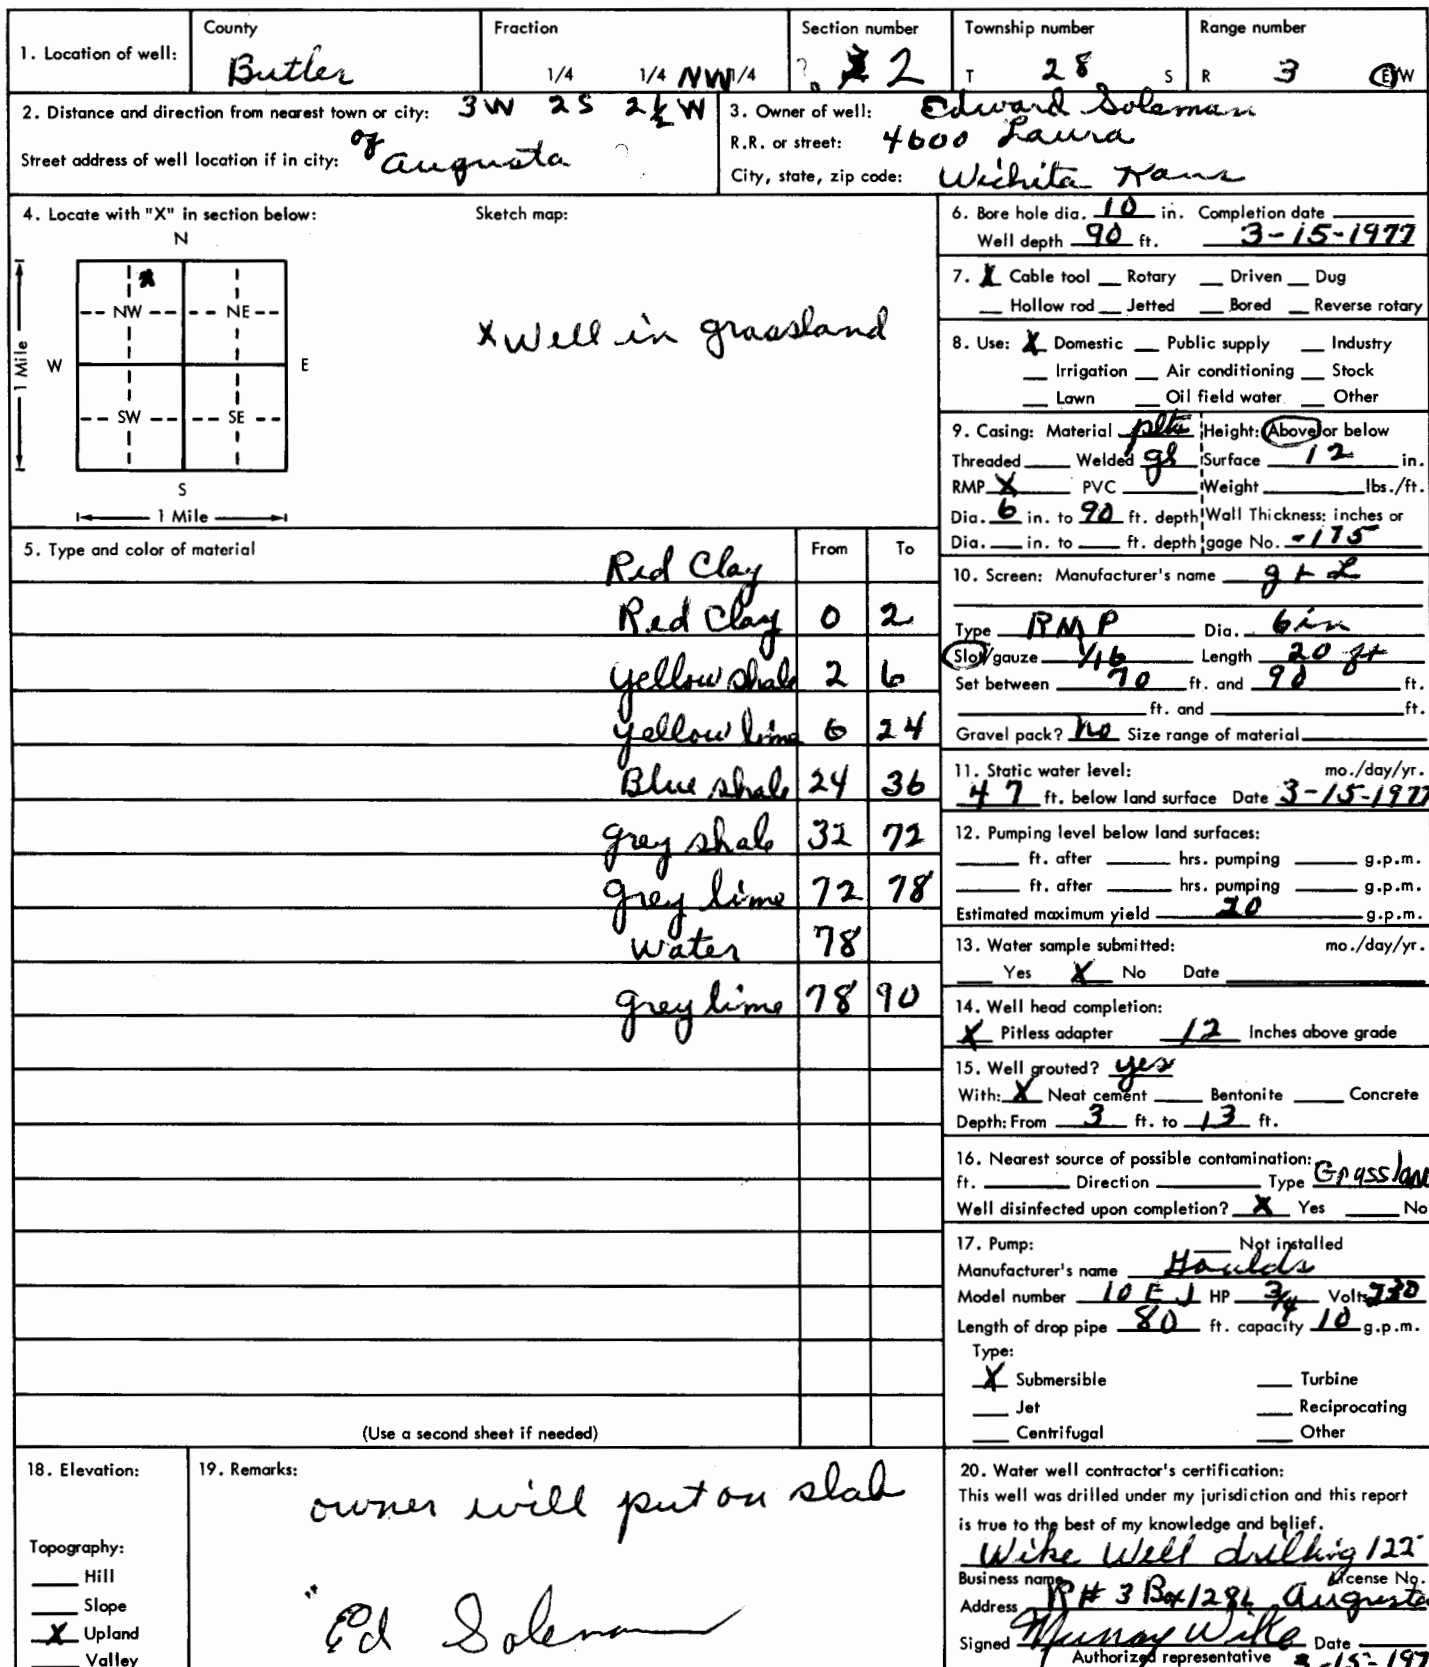 1. Location of well: County Butler Fraction 1/4 1/4 NW 1/4 Section number ? 2 Township number T 28 S Range number R 3 E/W
2. Distance and direction from nearest town or city: 3W 2S 2½ W
of Augusta
Street address of well location if in city:
3. Owner of well: Edward Soleman
R.R. or street: 4600 Laura
City, state, zip code: Wichita Kans
4. Locate with "X" in section below:
Sketch map:
N
NW NE
W E
SW SE
S
1 Mile
1 Mile
X Well in grassland
5. Type and color of material From To
Red Clay
Red Clay 0 2
yellow shale 2 6
yellow lime 6 24
Blue shale 24 36
grey shale 32 72
grey lime 72 78
water 78
grey lime 78 90
(Use a second sheet if needed)
6. Bore hole dia. 10 in. Completion date
Well depth 90 ft. 3-15-1977
7. X Cable tool Rotary Driven Dug
Hollow rod Jetted Bored Reverse rotary
8. Use: X Domestic Public supply Industry
Irrigation Air conditioning Stock
Lawn Oil field water Other
9. Casing: Material Height: Above or below
Threaded Welded Surface 12 in.
RMP X PVC Weight lbs./ft.
Dia. 6 in. to 90 ft. depth Wall Thickness: inches or
Dia. in. to ft. depth gage No. -175
10. Screen: Manufacturer's name
Type RMP Dia. 6in
Slot/gauze 1/16 Length 20 ft
Set between 70 ft. and 90 ft.
ft. and ft.
Gravel pack? no Size range of material
11. Static water level: mo./day/yr.
47 ft. below land surface Date 3-15-1977
12. Pumping level below land surfaces:
ft. after hrs. pumping g.p.m.
ft. after hrs. pumping g.p.m.
Estimated maximum yield 20 g.p.m.
13. Water sample submitted: mo./day/yr.
Yes X No Date
14. Well head completion:
X Pitless adapter 12 Inches above grade
15. Well grouted? yes
With: X Neat cement Bentonite Concrete
Depth: From 3 ft. to 13 ft.
16. Nearest source of possible contamination:
ft. Direction Type Grasslan
Well disinfected upon completion? X Yes No
17. Pump: Not installed
Manufacturer's name Goulds
Model number 10 EJ HP 3/4 Volts 230
Length of drop pipe 80 ft. capacity 10 g.p.m.
Type:
X Submersible Turbine
Jet Reciprocating
Centrifugal Other
18. Elevation:
Topography:
Hill
Slope
X Upland
Valley
19. Remarks:
owner will put on slab
" Ed Soleman
20. Water well contractor's certification:
This well was drilled under my jurisdiction and this report
is true to the best of my knowledge and belief.
Wike Well drilling 122
Business name License No.
Address R# 3 Box 128 Augusta
Signed Murray Wike Date
Authorized representative 3-15-197